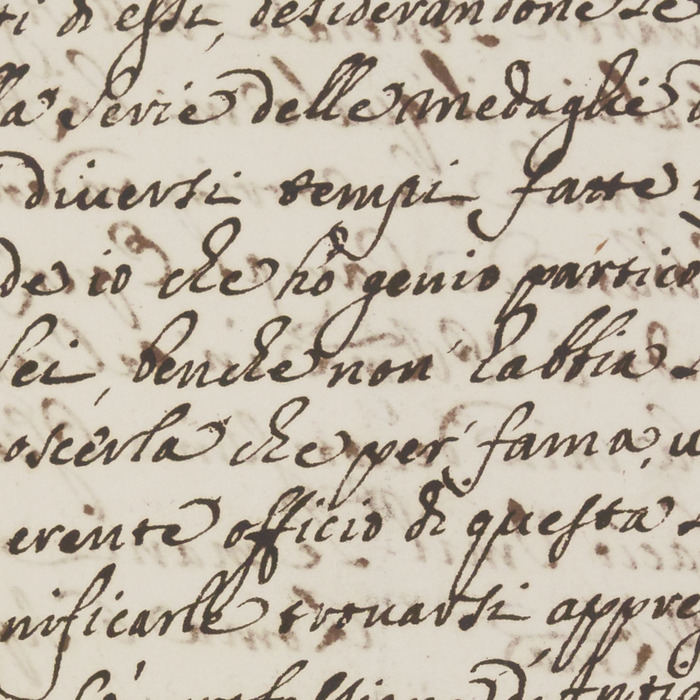 ti di essi, desiderandone le
la Serie delle medaglie
diuersi tempi fatte
de io che hò genio partico
Lei, benche non habbia
oscerla che per fama, u
erente officio di questa
nificarle trouarsi appre